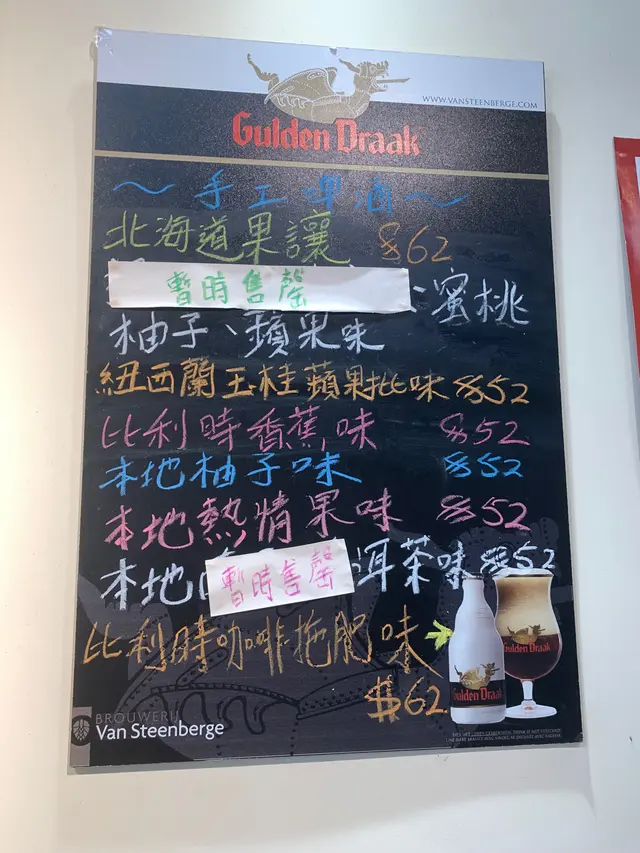 WWW.VANSTEENBERGE.COM
Gulden Draak
~手工啤酒~
北海道果讓 $62
暫時售罄 、蜜桃
柚子、蘋果味
紐西蘭玉桂蘋果批味 $52
比利時香蕉味 $52
本地柚子味 $52
本地熱情果味 $52
本地 暫時售罄 洱茶味 $52
比利時咖啡拖肥味
$62
Gulden Draak
Gulden Draak
BROUWERIJ
Van Steenberge